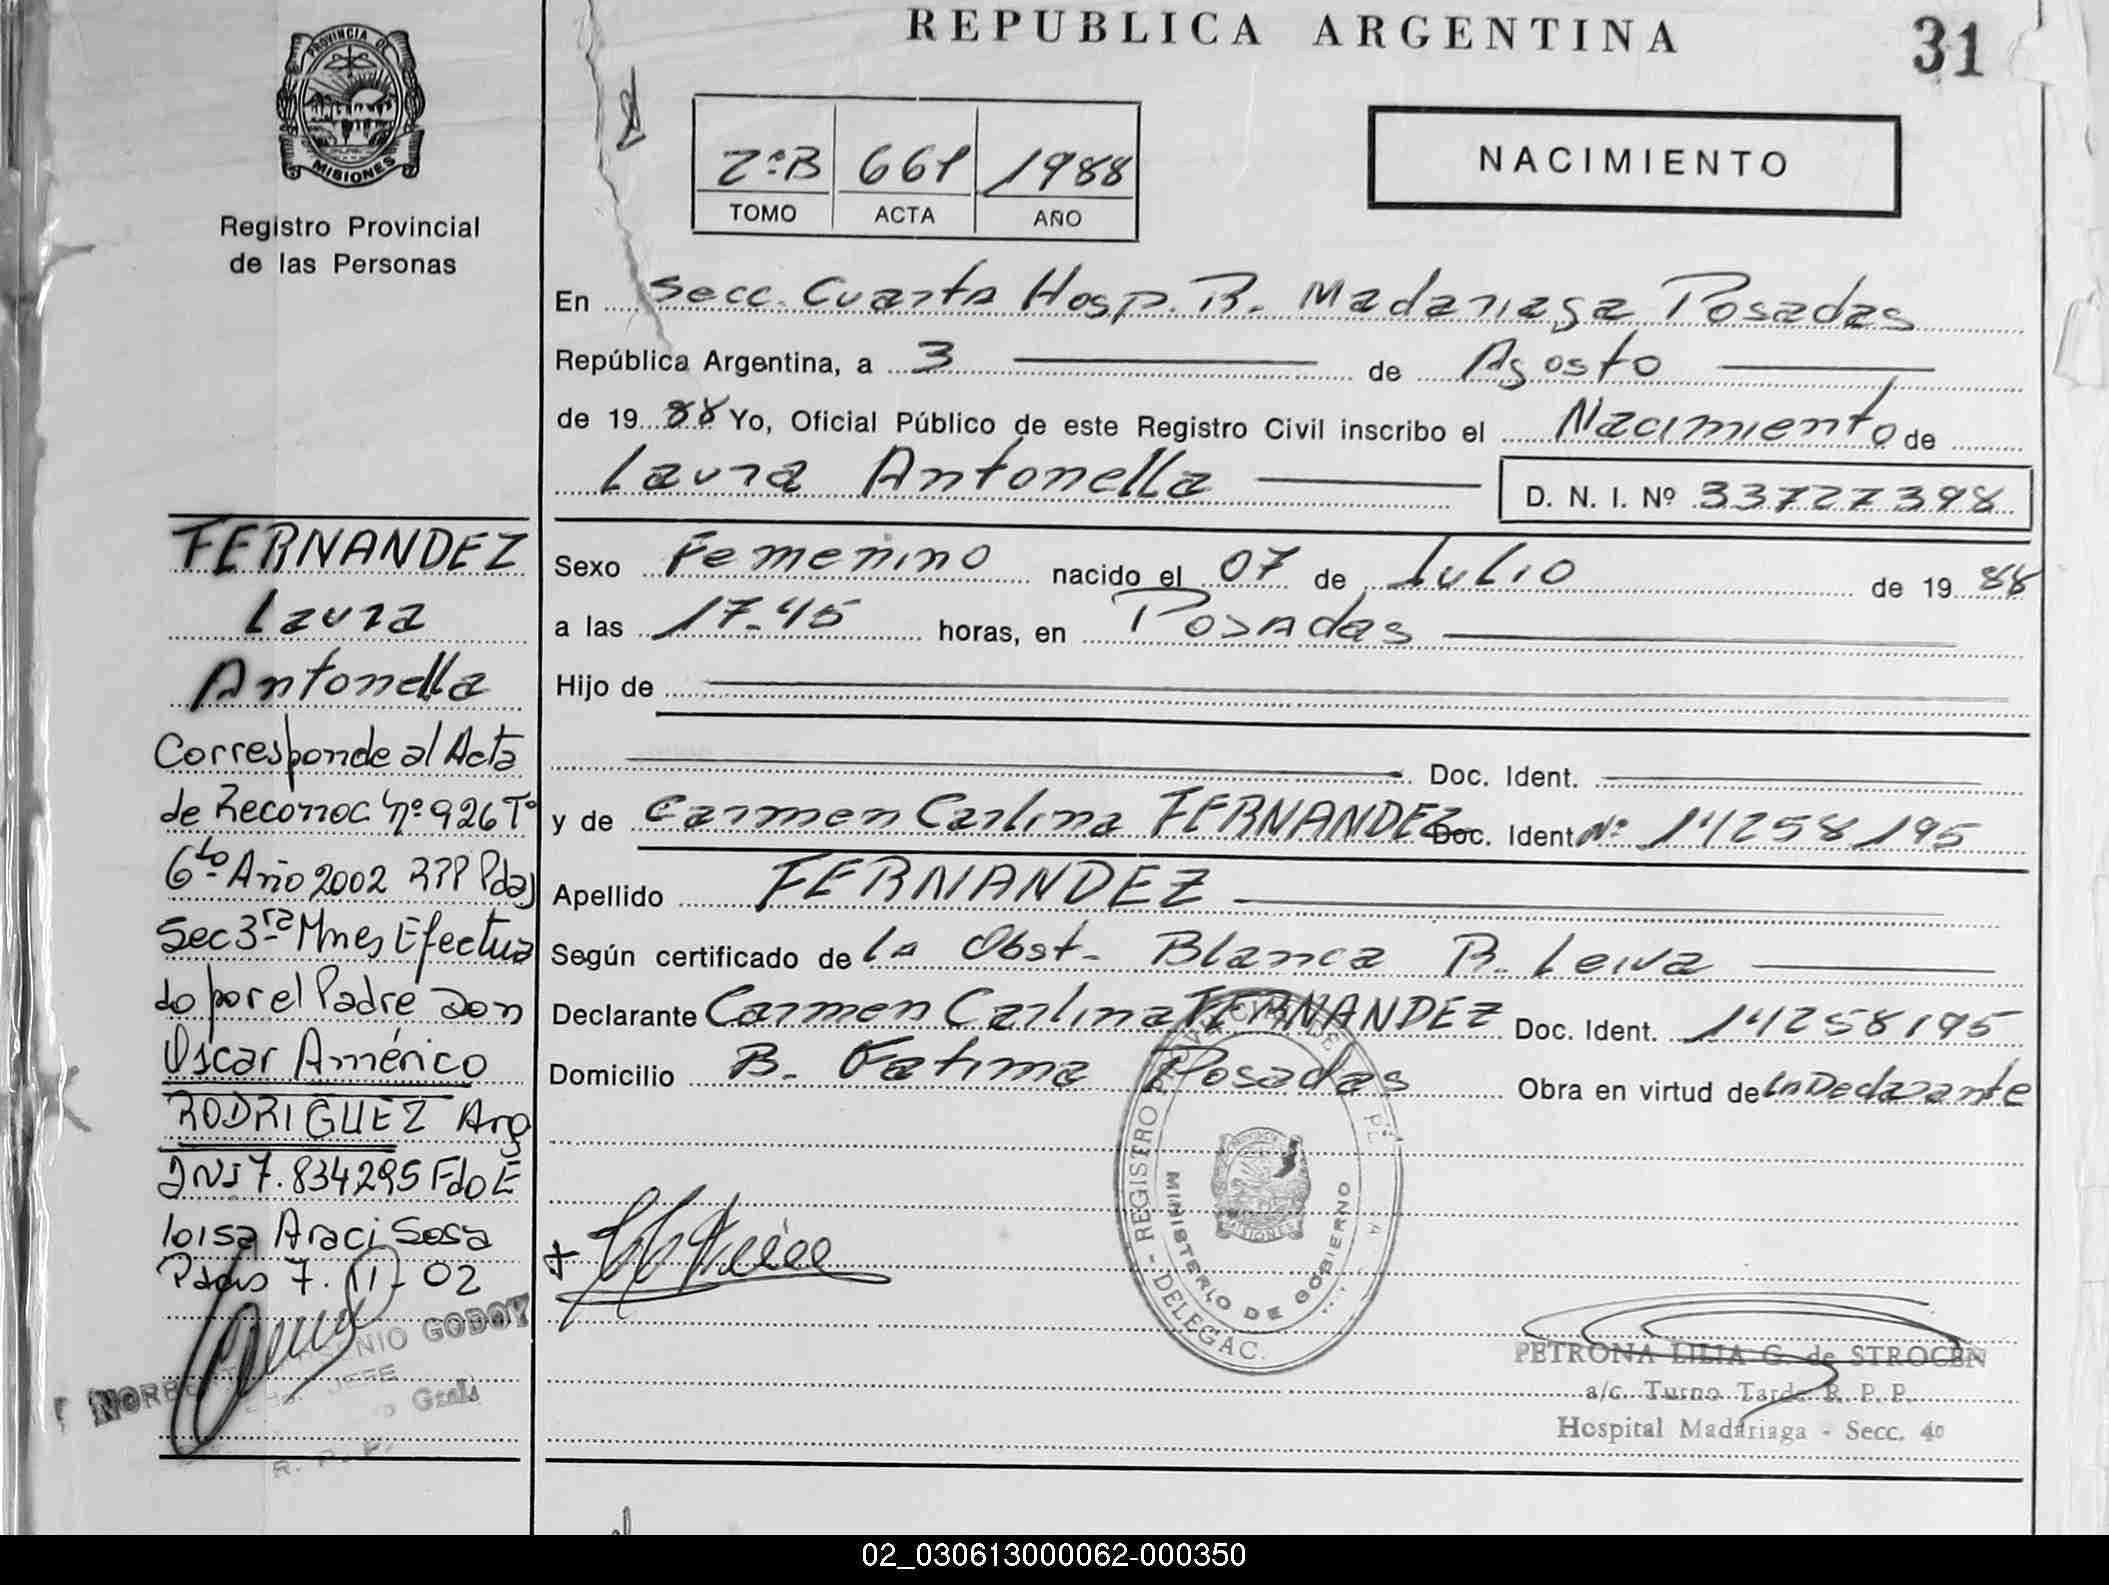 REPUBLICA ARGENTINA
31
PROVINCIA DE
MISIONES
Registro Provincial
de las Personas
2ºB 661 1988
TOMO ACTA AÑO
NACIMIENTO
En Secc. Cuarta Hosp. R. Madariaga Posadas
República Argentina, a 3 de Agosto
de 19 88 Yo, Oficial Público de este Registro Civil inscribo el Nacimiento de
Laura Antonella
D. N. I. Nº 33727398
Sexo Femenino nacido el 07 de Julio de 19 88
a las 17-45 horas, en Posadas
Hijo de
Doc. Ident.
y de Carmen Carlina FERNANDEZ Doc. Ident Nº 14258195
Apellido FERNANDEZ
Según certificado de la Obst. Blanca R. Leiva
Declarante Carmen Carlina FERNANDEZ Doc. Ident. 14258195
Domicilio B. Fatima Posadas Obra en virtud de la Declarante
FERNANDEZ
Laura
Antonella
Corresponde al Acta
de Reconoc nº 926 Tº
6to Año 2002 RPP Pdas
Sec 3ra Mnes Efectua
do por el Padre Don
Oscar Américo
RODRIGUEZ Arg
DNI 7.834295 Fdo E
loisa Araci Sosa
Pdas 7-11-02
GODOY
JEFE
Gral
REGISTRO PROVINCIAL DE
DELEGAC.
MINISTERIO DE GOBIERNO
PROVINCIA
MISIONES
PETRONA LILIA G. de STROCEN
a/c. Turno Tarde R. P. P.
Hospital Madariaga - Secc. 4º
02_030613000062-000350